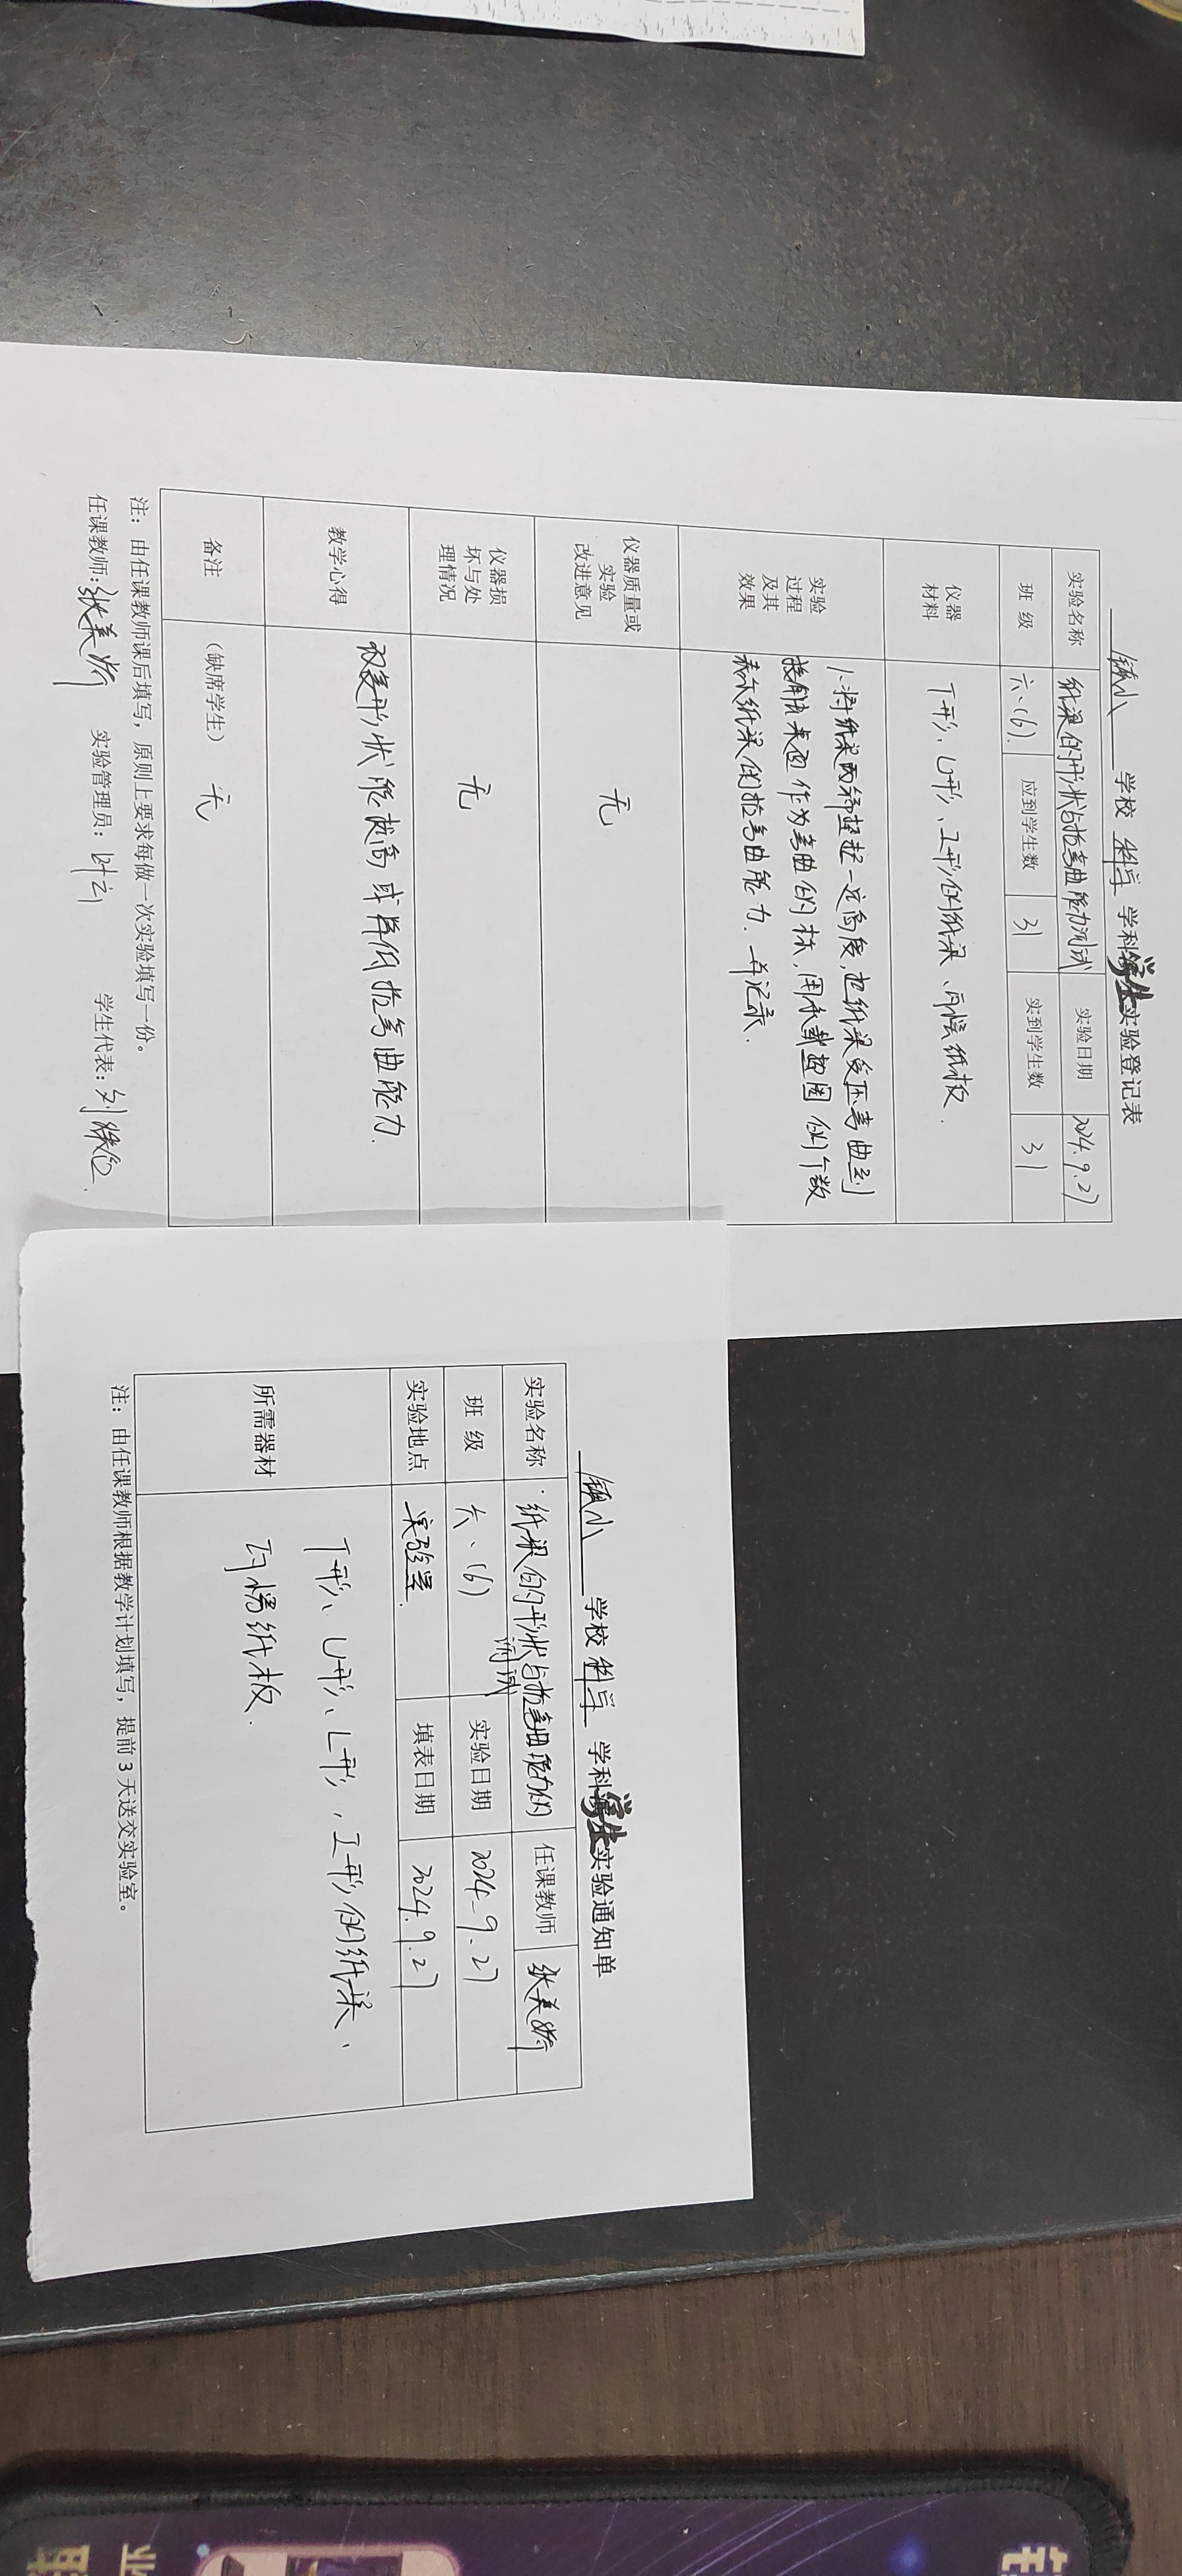 镇小 学校 科学 学科学生实验登记表
实验名称 纸梁的形状与抗弯曲能力测试 实验日期 2024.9.27
班 级 六、(6). 应到学生数 31 实到学生数 31
仪器材料 T形、U形、工形的纸梁、瓦楞纸板.
实验过程及其效果 1、将纸梁两端垫起一定高度,把纸梁受压弯曲到
接触桌面作为弯曲的标,用承载垫圈的个数
表示纸梁的抗弯曲能力.并记录.
仪器质量或实验改进意见 无
仪器损坏与处理情况 无
教学心得 改变形状能提高或降低抗弯曲能力.
备注 (缺席学生) 无
注:由任课教师课后填写,原则上要求每做一次实验填写一份。
任课教师:张美娇 实验管理员:叶云 学生代表:刘
镇小 学校 科学 学科学生实验通知单
实验名称 纸梁的形状与抗弯曲能力的测试 任课教师 张美娇
班 级 六、(6) 实验日期 2024.9.27
实验地点 实验室. 填表日期 2024.9.27
所需器材 T形、U形、L形、工形的纸梁、
瓦楞纸板.
注:由任课教师根据教学计划填写,提前3天送交实验室。